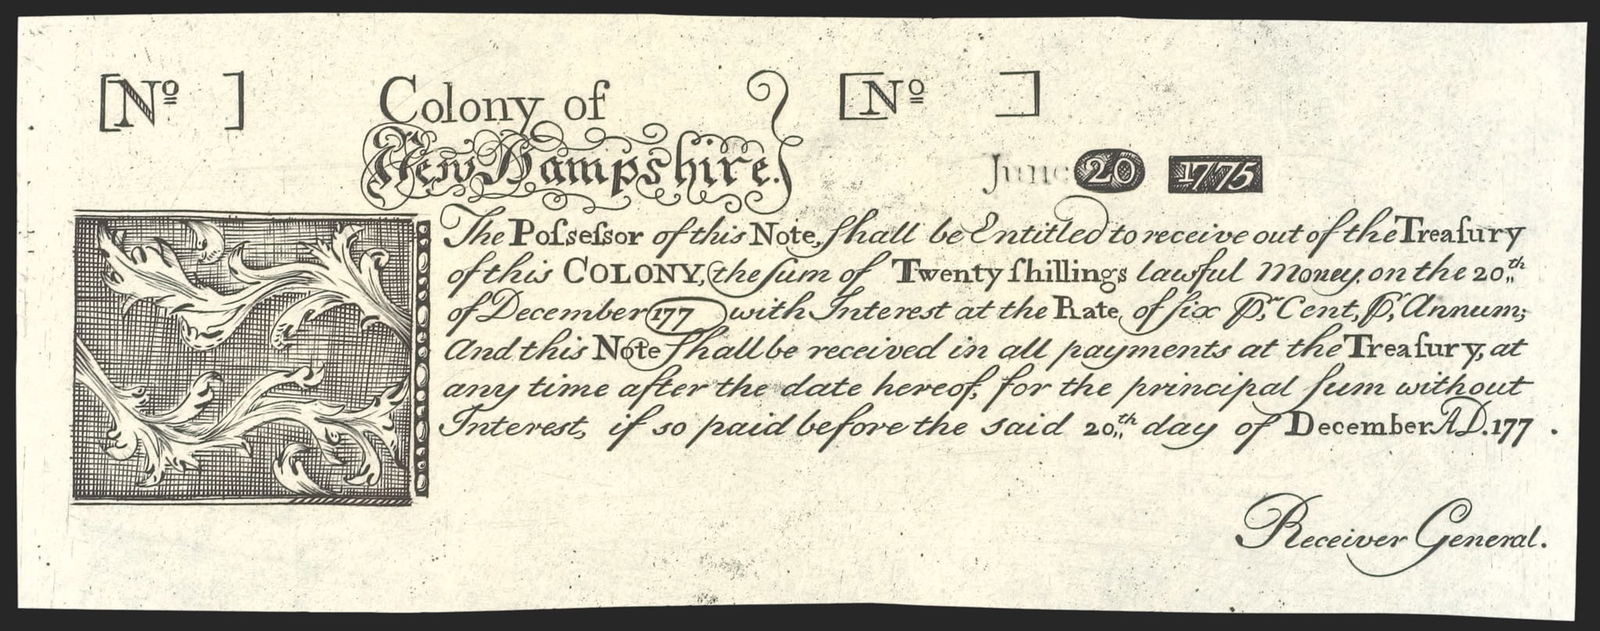 [Nº ] Colony of [Nº ]
New Hampshire.
June 20 1775
The Poſseſsor of this Note, ſhall be Entitled to receive out of the Treaſury
of this COLONY, the ſum of Twenty ſhillings lawful Money, on the 20,,th
of December 177 with Interest at the Rate of ſix Pr. Cent, Pr. Annum;
And this Note ſhall be received in all payments at the Treaſury, at
any time after the date hereof, for the principal ſum without
Interest, if so paid before the said 20,,th day of December A.D. 177 .
Receiver General.